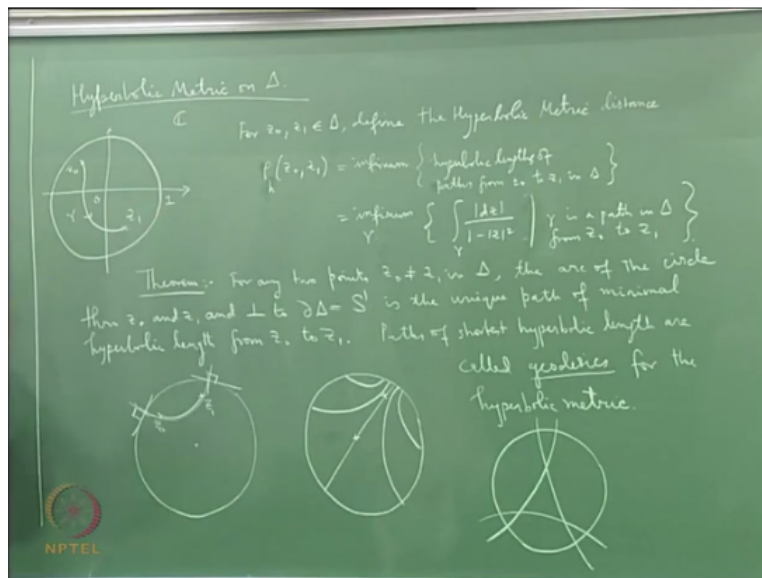 Hyperbolic Metric on Δ.
ℂ
For z₀, z₁ ∈ Δ, define the Hyperbolic Metric distance
ρₕ(z₀, z₁) = infimum { hyperbolic lengths of
paths from z₀ to z₁ in Δ }
= infimum_γ { ∫_γ |dz| / (1-|z|²) | γ is a path in Δ
from z₀ to z₁ }.
z₀
0
1
γ
z₁
Theorem:- For any two points z₀ ≠ z₁ in Δ, the arc of the circle
thru z₀ and z₁ and ⊥ to ∂Δ = S¹ is the unique path of minimal
hyperbolic length from z₀ to z₁. Paths of shortest hyperbolic length are
called geodesics for the
hyperbolic metric.
z₀
z₁
NPTEL